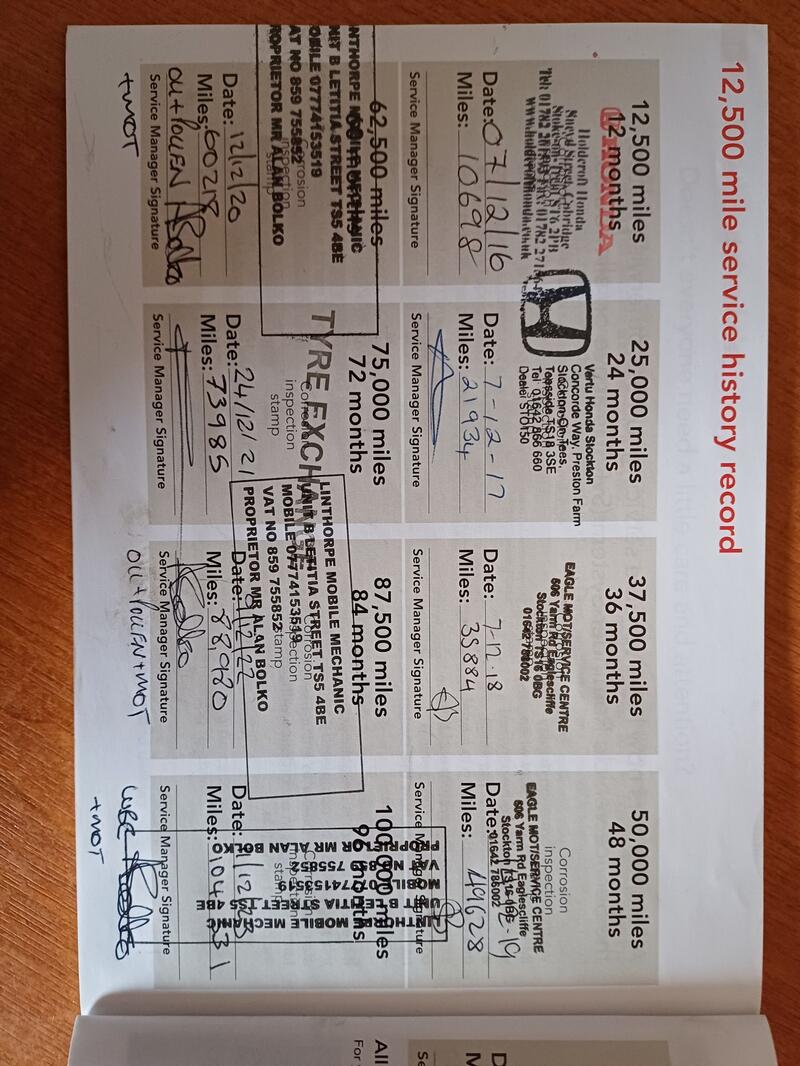 12,500 mile service history record
12,500 miles
12 months
HONDA
Holdcroft Honda
Date: 07/12/16
Miles: 10698
Service Manager Signature
25,000 miles
24 months
Vertu Honda Stockton
Concorde Way, Preston Farm
Stockton-On-Tees,
Teesside TS18 3SE
Tel: 01642 866 660
Date: 7-12-17
Miles: 21934
Service Manager Signature
37,500 miles
36 months
EAGLE MOT/SERVICE CENTRE
606 Yarm Rd Eaglescliffe
Stockton TS16 0BG
01642 786002
Date: 7-12-18
Miles: 35884
Service Manager Signature
50,000 miles
48 months
Corrosion
inspection
EAGLE MOT/SERVICE CENTRE
606 Yarm Rd Eaglescliffe
Stockton TS16
01642 786002
Date:
Miles: 49628
Service Manager Signature
62,500 miles
LINTHORPE MOBILE MECHANIC
UNIT B LETITIA STREET TS5 4BE
MOBILE 07774153519
VAT NO 859 755852
PROPRIETOR MR ALAN BOLKO
Date: 12/12/20
Miles: 60218
OIL + POLLEN ABolko
Service Manager Signature
+MOT
75,000 miles
72 months
TYRE EXCHANGE
Corrosion
inspection
stamp
Date: 24/12/21
Miles: 73985
Service Manager Signature
87,500 miles
84 months
LINTHORPE MOBILE MECHANIC
UNIT B LETITIA STREET TS5 4BE
MOBILE 07774153519
VAT NO 859 755852
PROPRIETOR MR ALAN BOLKO
Corrosion
inspection
stamp
Date: /12/22
Miles: 88,020
Service Manager Signature
OIL + POLLEN + MOT
100,000 miles
96 months
LINTHORPE MOBILE MECHANIC
UNIT B LETITIA STREET TS5 4BE
MOBILE 07774153519
VAT NO 859 755852
PROPRIETOR MR ALAN BOLKO
Date:
Miles:
Service Manager Signature
+MOT
All
For